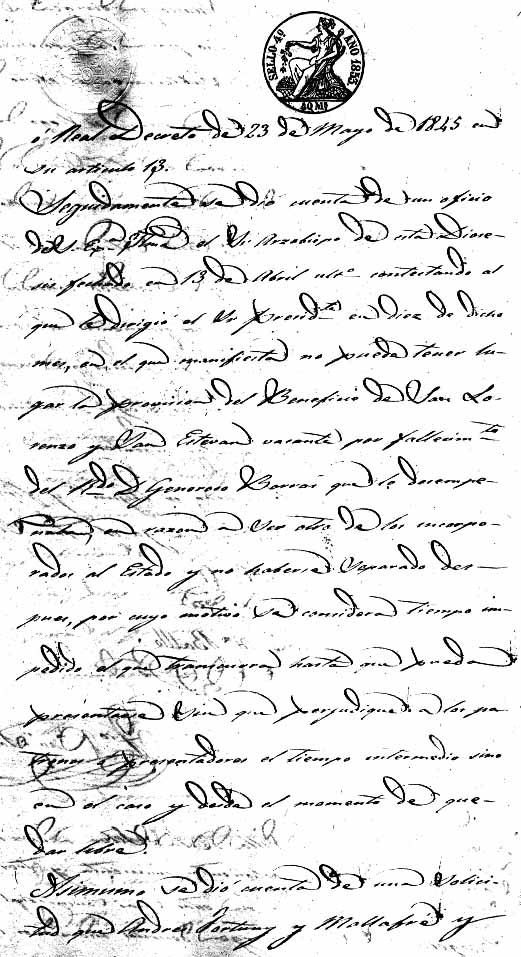 SELLO 4º AÑO 1853.
40 Ms
ó Real Decreto de 23 de Mayo de 1845 en
su articulo 13.
Seguidamente se dió cuenta de un oficio
del S. Eª Ylmª el Sr Arzobispo de esta Dioce-
sis fechado en 13 de Abril ultº contestando al
que le dirigió el Sr Presidte en diez de dicho
mes, en el que manifiesta no puede tener lu-
gar la provision del Beneficio de San Lo-
renzo y San Estevan vacante por fallecimto
del Rdo D. Generoso Borras que le desempe-
ñaba, en razon a ser otro de los incorpo-
rados al Estado y no haberse separado des-
pues, por cuyo motivo se considera tiempo im-
pedido el que transcurra hasta que pueda
presentarse sin que perjudique a los pa-
tronos o presentadores el tiempo intermedio sino
en el caso y desde el momento de que-
dar libre.
Asimismo se dió cuenta de una solici-
tud que Andres Fortuny y Mallafré y